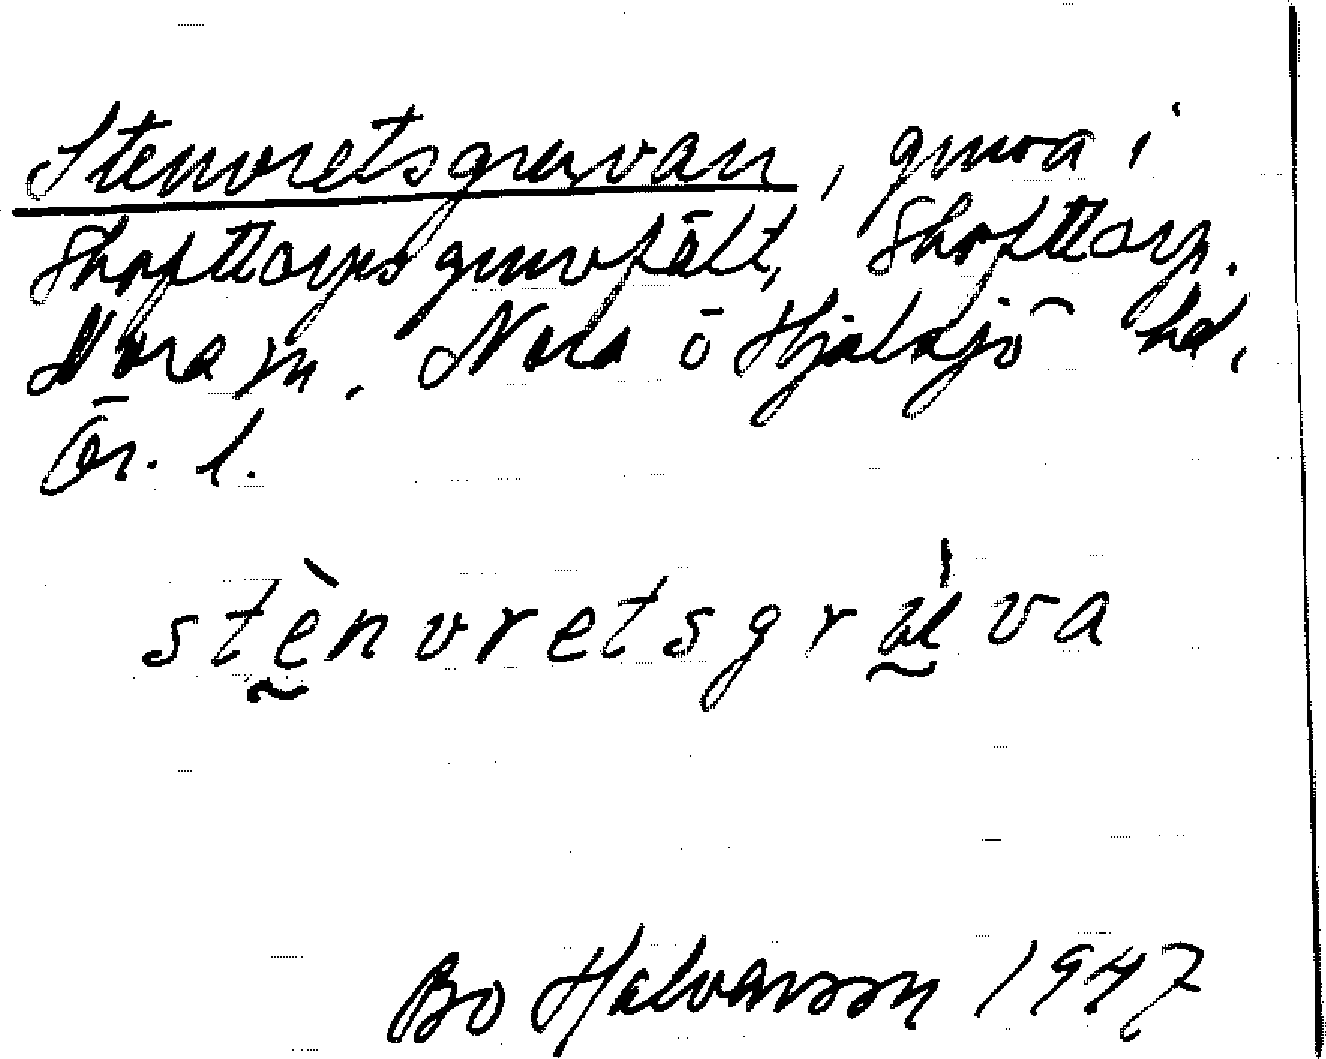 Stenvretsgruvan, gruva i
Skofttorpsgruvfält, Skofttorp.
Nora sn. Nora ō Hjulsjö hd.
Ör. l.
stènvretsgrúva
Bo Halvarsson 1947